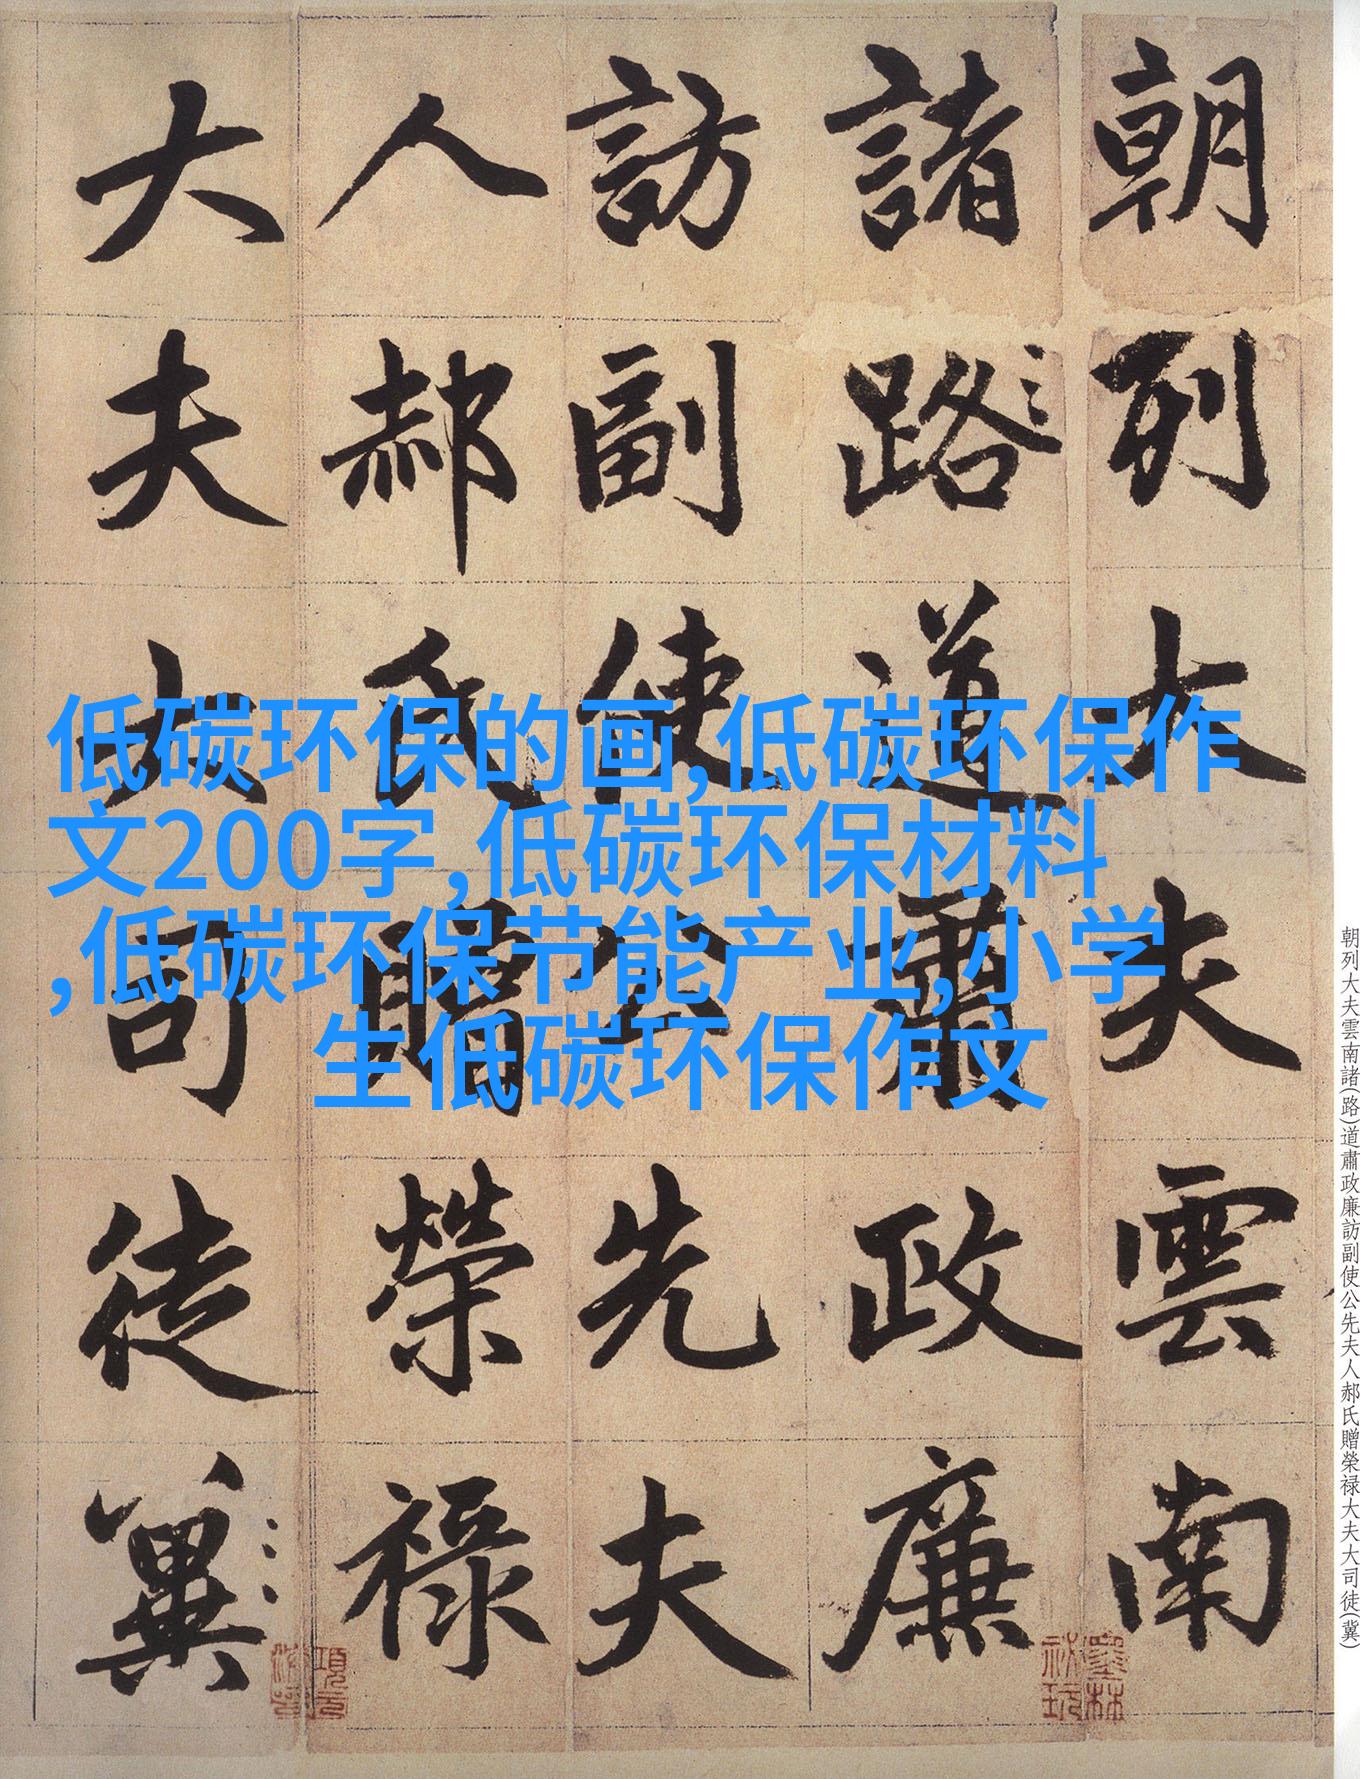 朝列大夫雲南
諸路道肅政廉
訪副使公先夫
人郝氏贈榮禄
大夫大司徒冀
低碳环保的画,低碳环保作
文200字,低碳环保材料
,低碳环保节能产业,小学
生低碳环保作文
朝列大夫雲南諸(路)道肅政廉訪副使公先夫人郝氏贈榮禄大夫大司徒(冀)